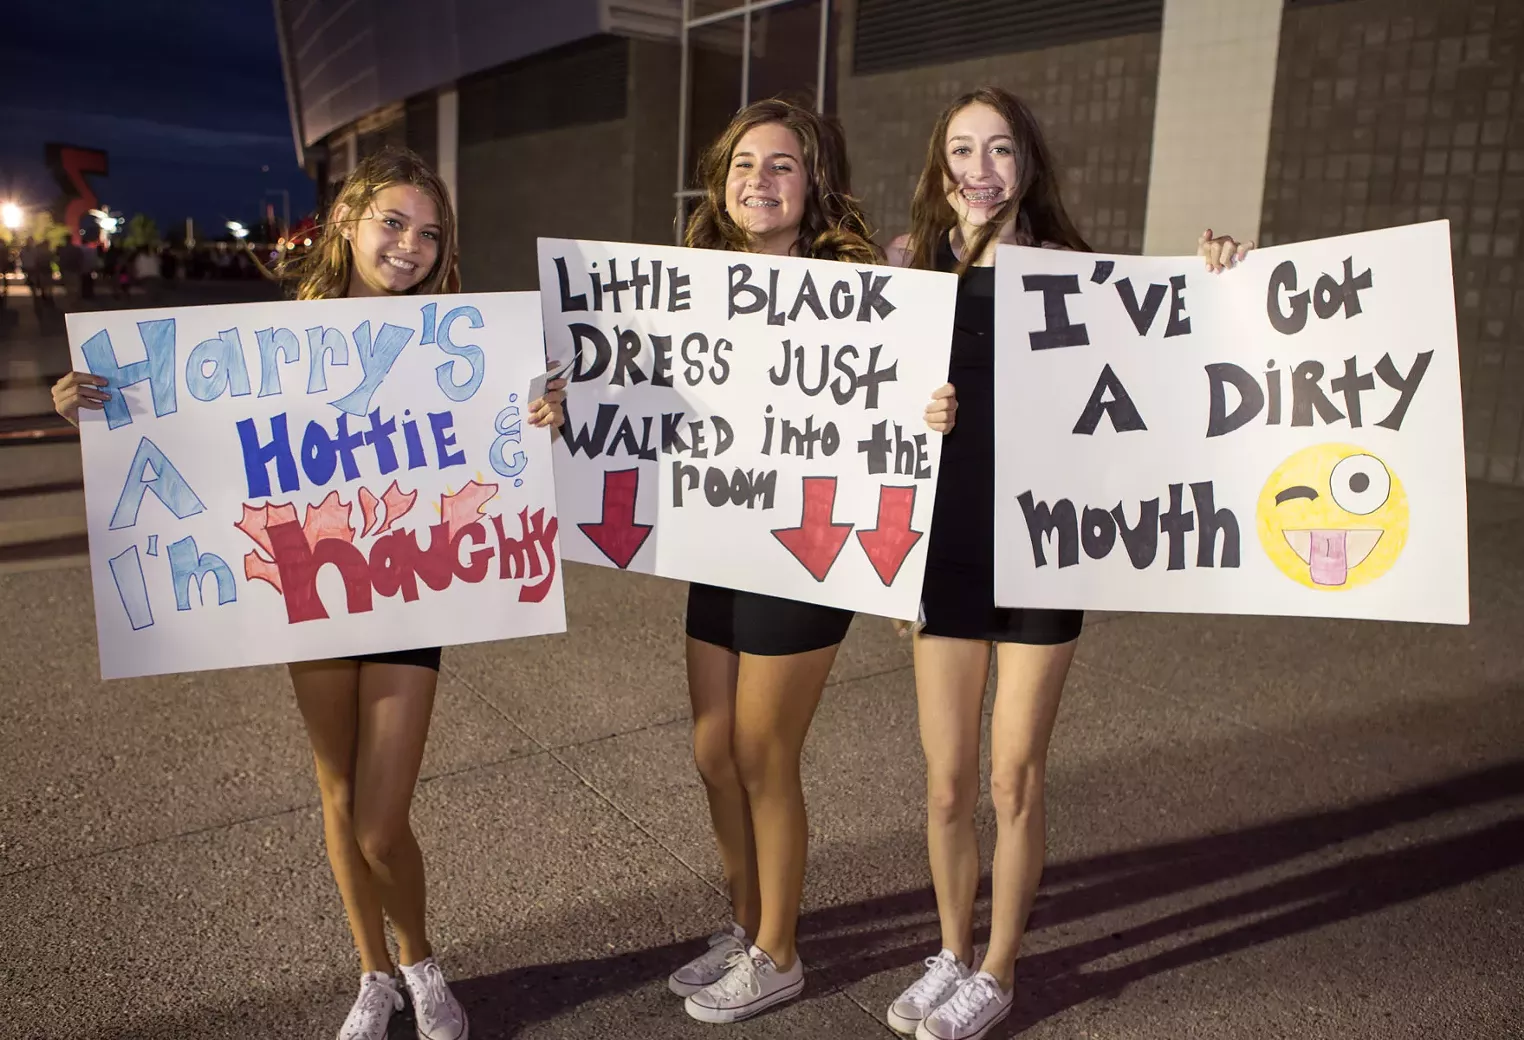 Harry's
A Hottie &
I'm naughty
Little BLACK
DRESS JUST
WALKED into the
room
I'VE Got
A Dirty
mouth
3